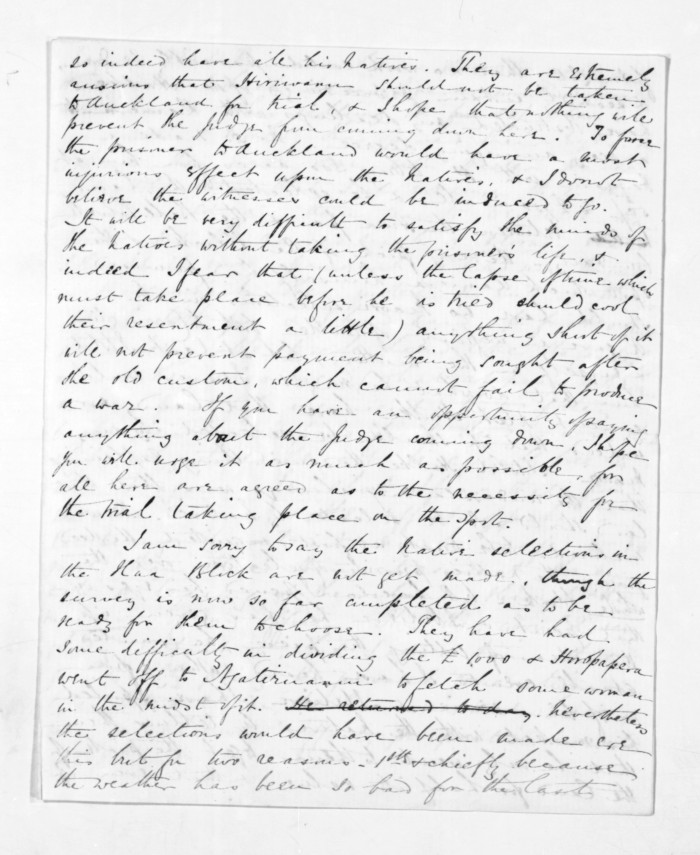 so indeed have all his Natives. They are extremely
anxious that Hiriwanu should not be taken
to Auckland for trial, & I hope that nothing will
prevent the Judge from coming down here. To force
the prisoner to Auckland would have a most
injurious effect upon the Natives, & I do not
believe the witnesses could be induced to go.
It will be very difficult to satisfy the minds of
the Natives without taking the prisoner's life, &
indeed I fear that (unless the lapse of time which
must take place before he is tried should cool
their resentment a little) anything short of it
will not prevent payment being sought after
the old custom, which cannot fail to produce
a war. If you have an opportunity of saying
anything about the Judge coming down, I hope
you will urge it as much as possible, for
all here are agreed as to the necessity for
the trial taking place on the spot.
I am sorry to say the Native selections in
the Hua Block are not yet made, though the
survey is now so far completed as to be
ready for them to choose. They have had
some difficulty in dividing the £1000 &
went off to Ngatiruanui to fetch some woman
in the midst of it. He returned to day. Nevertheless
the selections would have been made ere
this but for two reasons - 1st & chiefly because
the weather has been so bad for the last